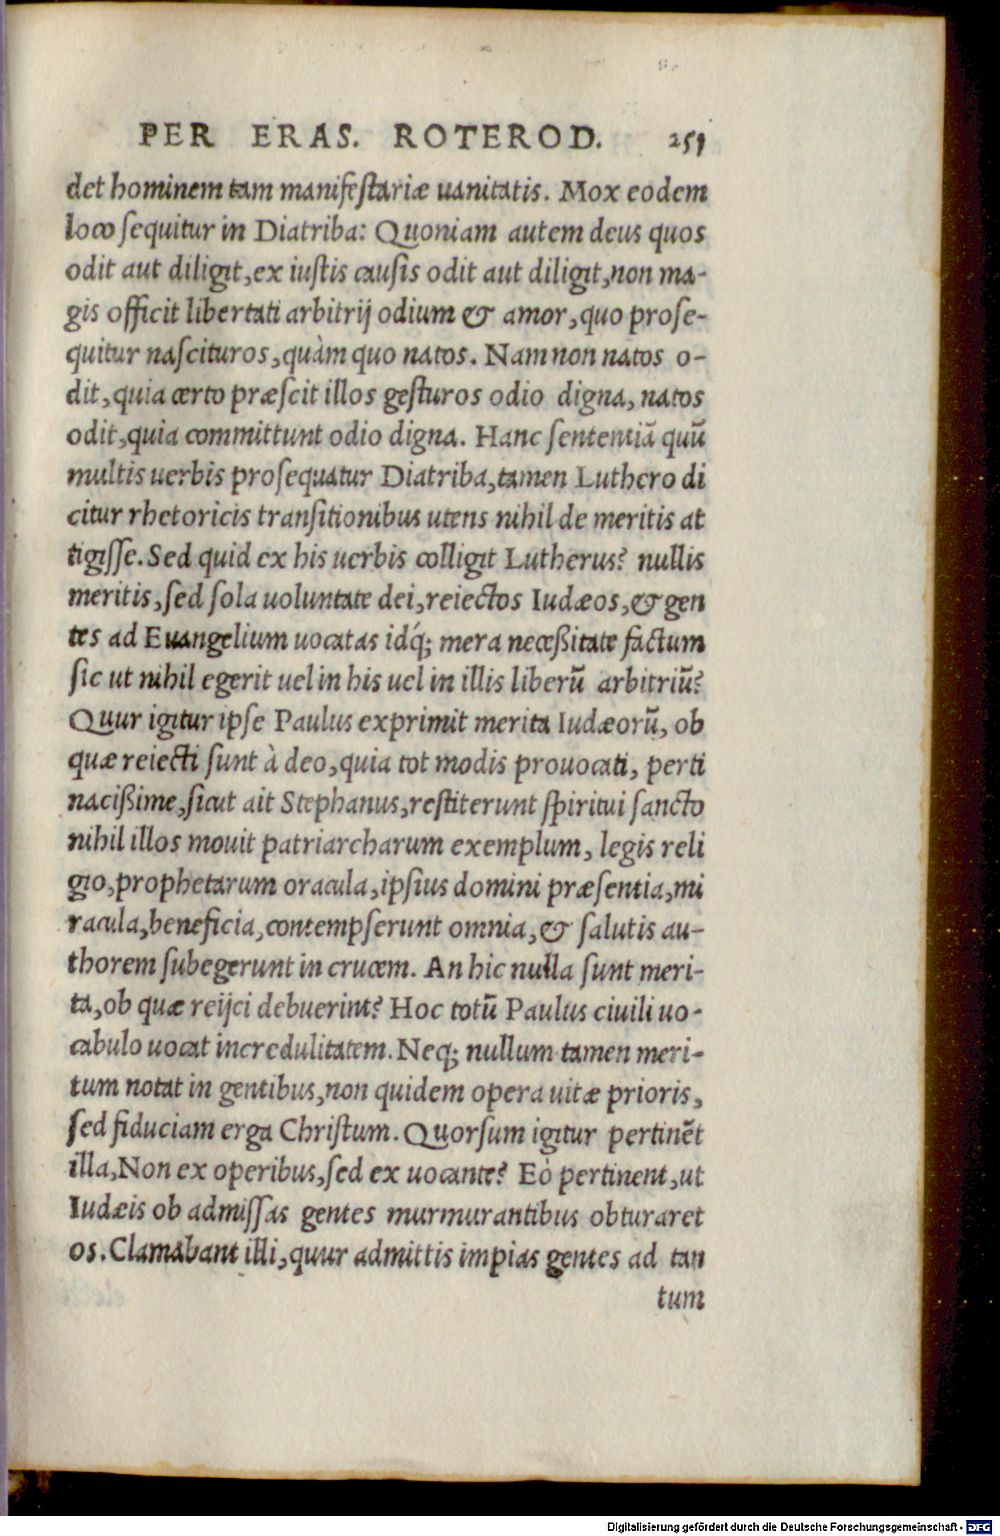 PER ERAS. ROTEROD. 251
det hominem tam manifestariæ uanitatis. Mox eodem
loco sequitur in Diatriba: Quoniam autem deus quos
odit aut diligit, ex iustis causis odit aut diligit, non ma-
gis officit libertati arbitrij odium & amor, quo prose-
quitur nascituros, quàm quo natos. Nam non natos o-
dit, quia certo præscit illos gesturos odio digna, natos
odit, quia committunt odio digna. Hanc sententiā quū
multis uerbis prosequatur Diatriba, tamen Luthero di
citur rhetoricis transitionibus utens nihil de meritis at
tigisse. Sed quid ex his uerbis colligit Lutherus? nullis
meritis, sed sola uoluntate dei, reiectos Iudæos, & gen
tes ad Euangelium uocatas idq́; mera necessitate factum
sic ut nihil egerit uel in his uel in illis liberū arbitriū?
Quur igitur ipse Paulus exprimit merita Iudæorū, ob
quæ reiecti sunt à deo, quia tot modis prouocati, perti
nacissime, sicut ait Stephanus, restiterunt spiritui sancto
nihil illos mouit patriarcharum exemplum, legis reli
gio, prophetarum oracula, ipsius domini præsentia, mi
racula, beneficia, contempserunt omnia, & salutis au-
thorem subegerunt in crucem. An hic nulla sunt meri-
ta, ob quæ reijci debuerint? Hoc totū Paulus ciuili uo-
cabulo uocat incredulitatem. Neq; nullum tamen meri-
tum notat in gentibus, non quidem opera uitæ prioris,
sed fiduciam erga Christum. Quorsum igitur pertinēt
illa, Non ex operibus, sed ex uocante? Eò pertinent, ut
Iudæis ob admissas gentes murmurantibus obturaret
os. Clamabant illi, quur admittis impias gentes ad tan
tum
Digitalisierung gefördert durch die Deutsche Forschungsgemeinschaft - DFG